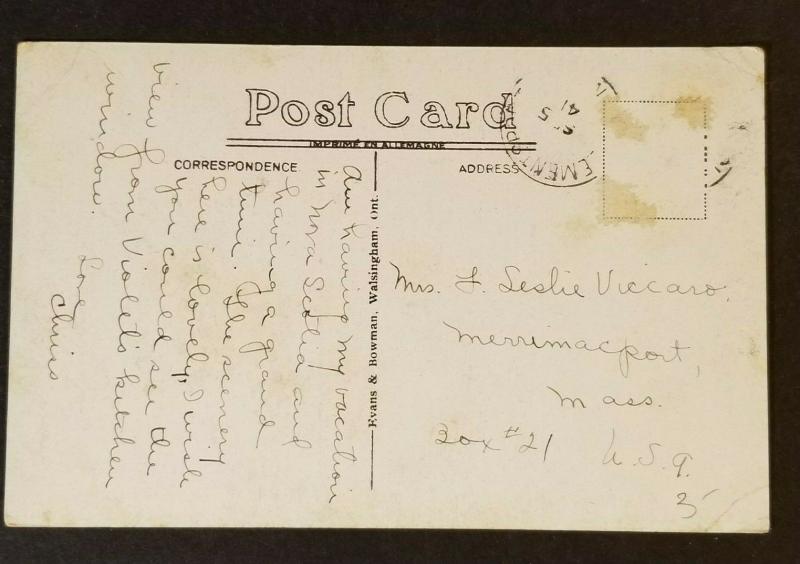 Post Card
IMPRIMÉ EN ALLEMAGNE
CORRESPONDENCE
ADDRESS
Evans & Bowman, Walsingham, Ont.
Am having my vacation
in Nova Scotia and
having a grand
time. The scenery
here is lovely, I wish
you could see the
view from Violet's kitchen
window.
Love
Chris
Mrs. F. Leslie Viccaro.
Merrimacport,
Mass.
Box #21
U.S.A.